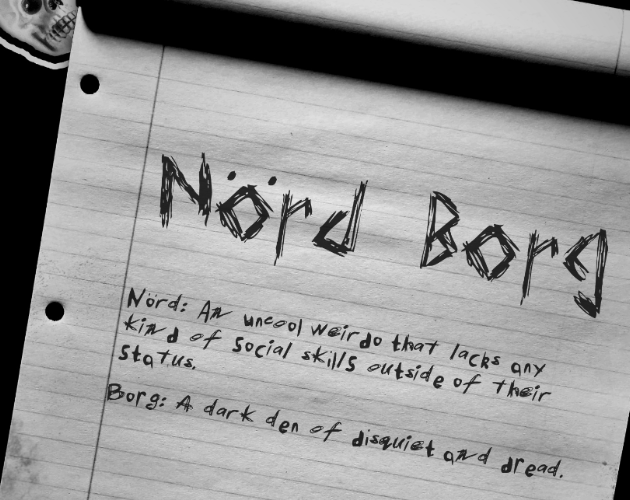 Nörd Borg
Nörd: An uncool weirdo that lacks any
kind of social skills outside of their
status.
Borg: A dark den of disquiet and dread.